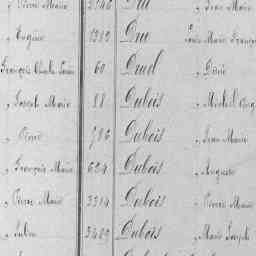 „ Pierre Marie 2546 Dué „ Jean Marie
„ Eugène 1989 Due Louis Marie François
François Charles Louis 60 Duel „ Désiré
„ Joseph Marie 88 Dubois „ Michel Ang
„ Pierre 786 Dubois „ Jean Marie
„ François Marie 624 Dubois „ Auguste
„ Pierre Marie 3314 Dubois „ Pierre Marie
„ Julien 3489 Dubois „ Marie Joseph